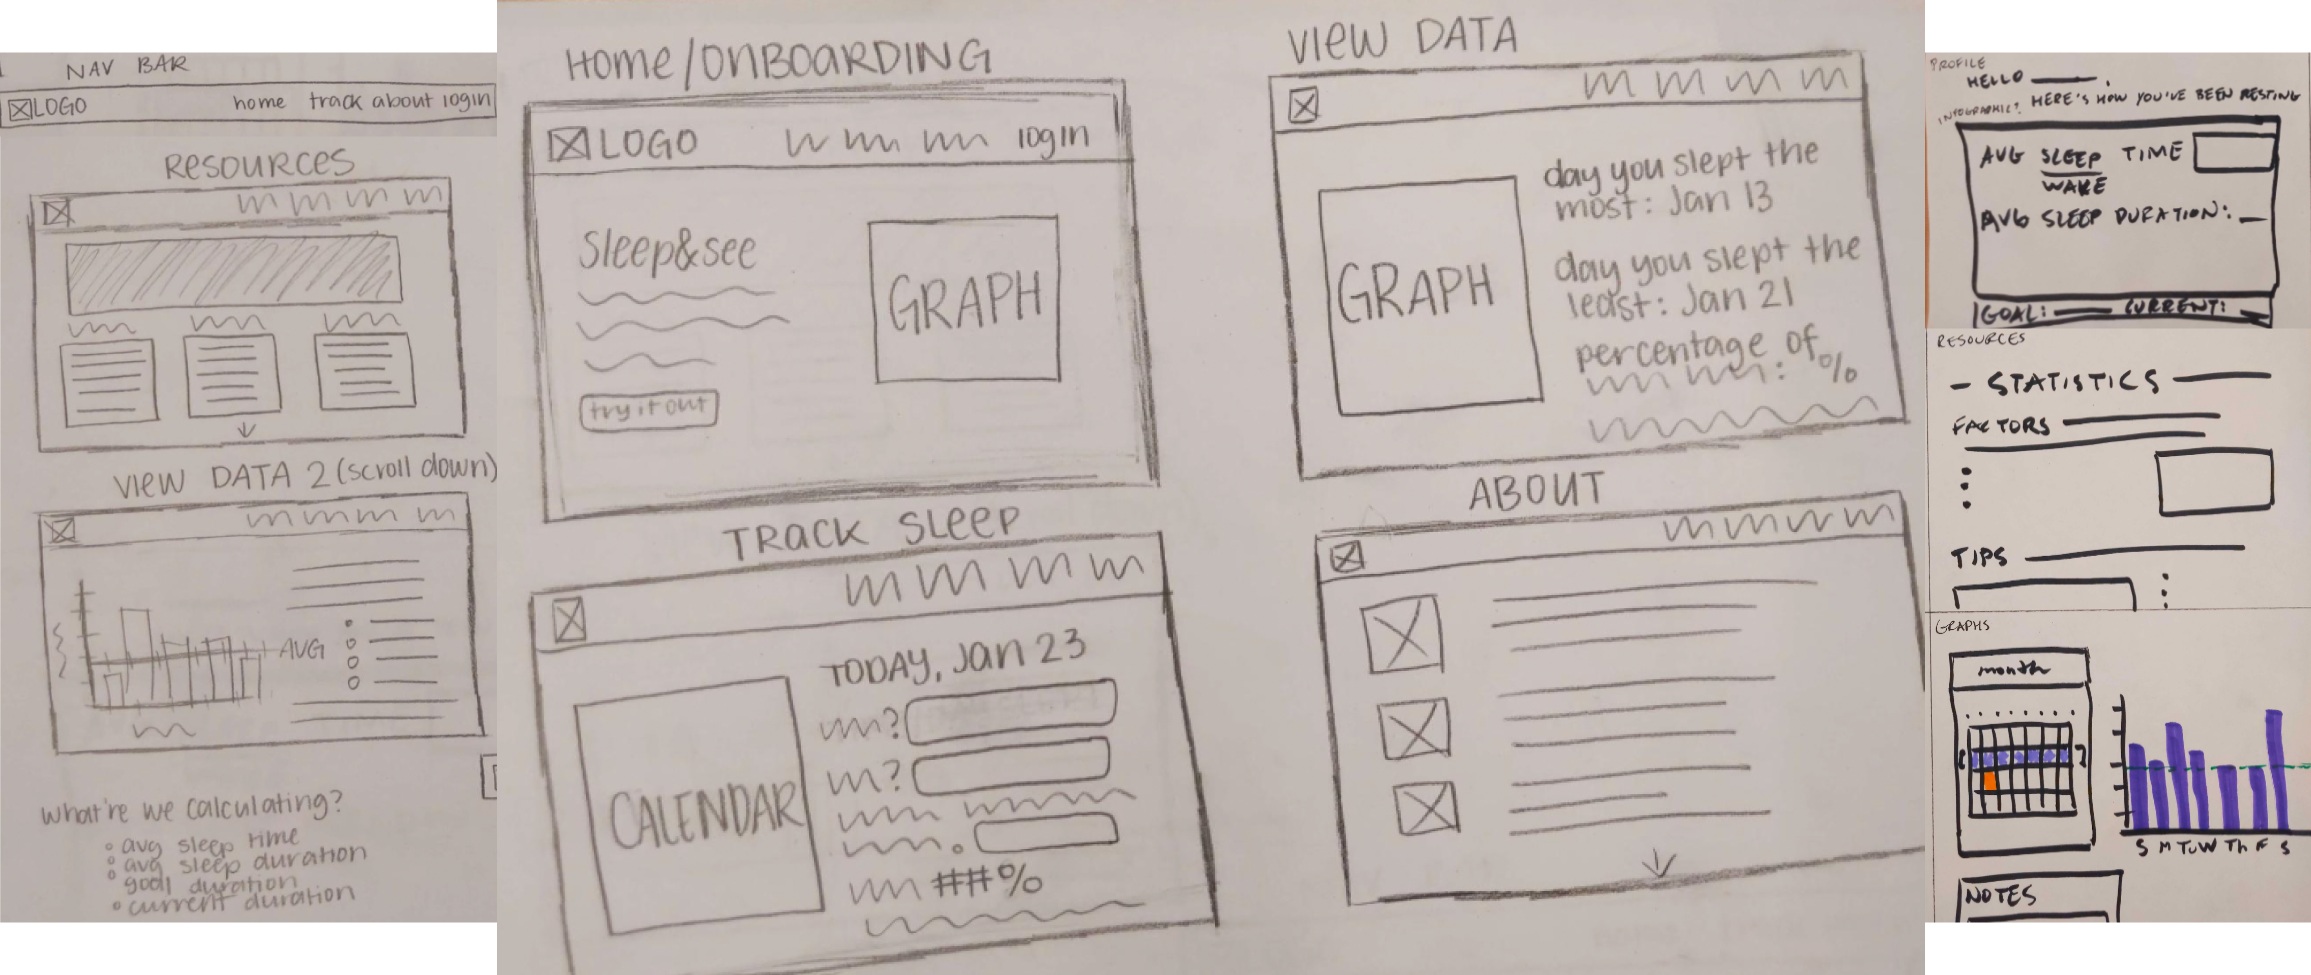 NAV BAR
LOGO home track about login
RESOURCES
VIEW DATA 2 (scroll down)
AVG
What're we calculating?
avg sleep time
avg sleep duration
goal duration
current duration
Home/ONBOARDING
LOGO login
Sleep&see
GRAPH
try it out
TRACK SLEEP
TODAY, Jan 23
?
?
CALENDAR
##%
VIEW DATA
day you slept the
most: Jan 13
GRAPH
day you slept the
least: Jan 21
percentage of
: %
ABOUT
PROFILE
HELLO
INFOGRAPHIC?
HERE'S HOW YOU'VE BEEN RESTING
AVG SLEEP TIME
WAKE
AVG SLEEP DURATION:
GOAL: CURRENT:
RESOURCES
- STATISTICS
FACTORS
TIPS
GRAPHS
month
S M Tu W Th F S
NOTES